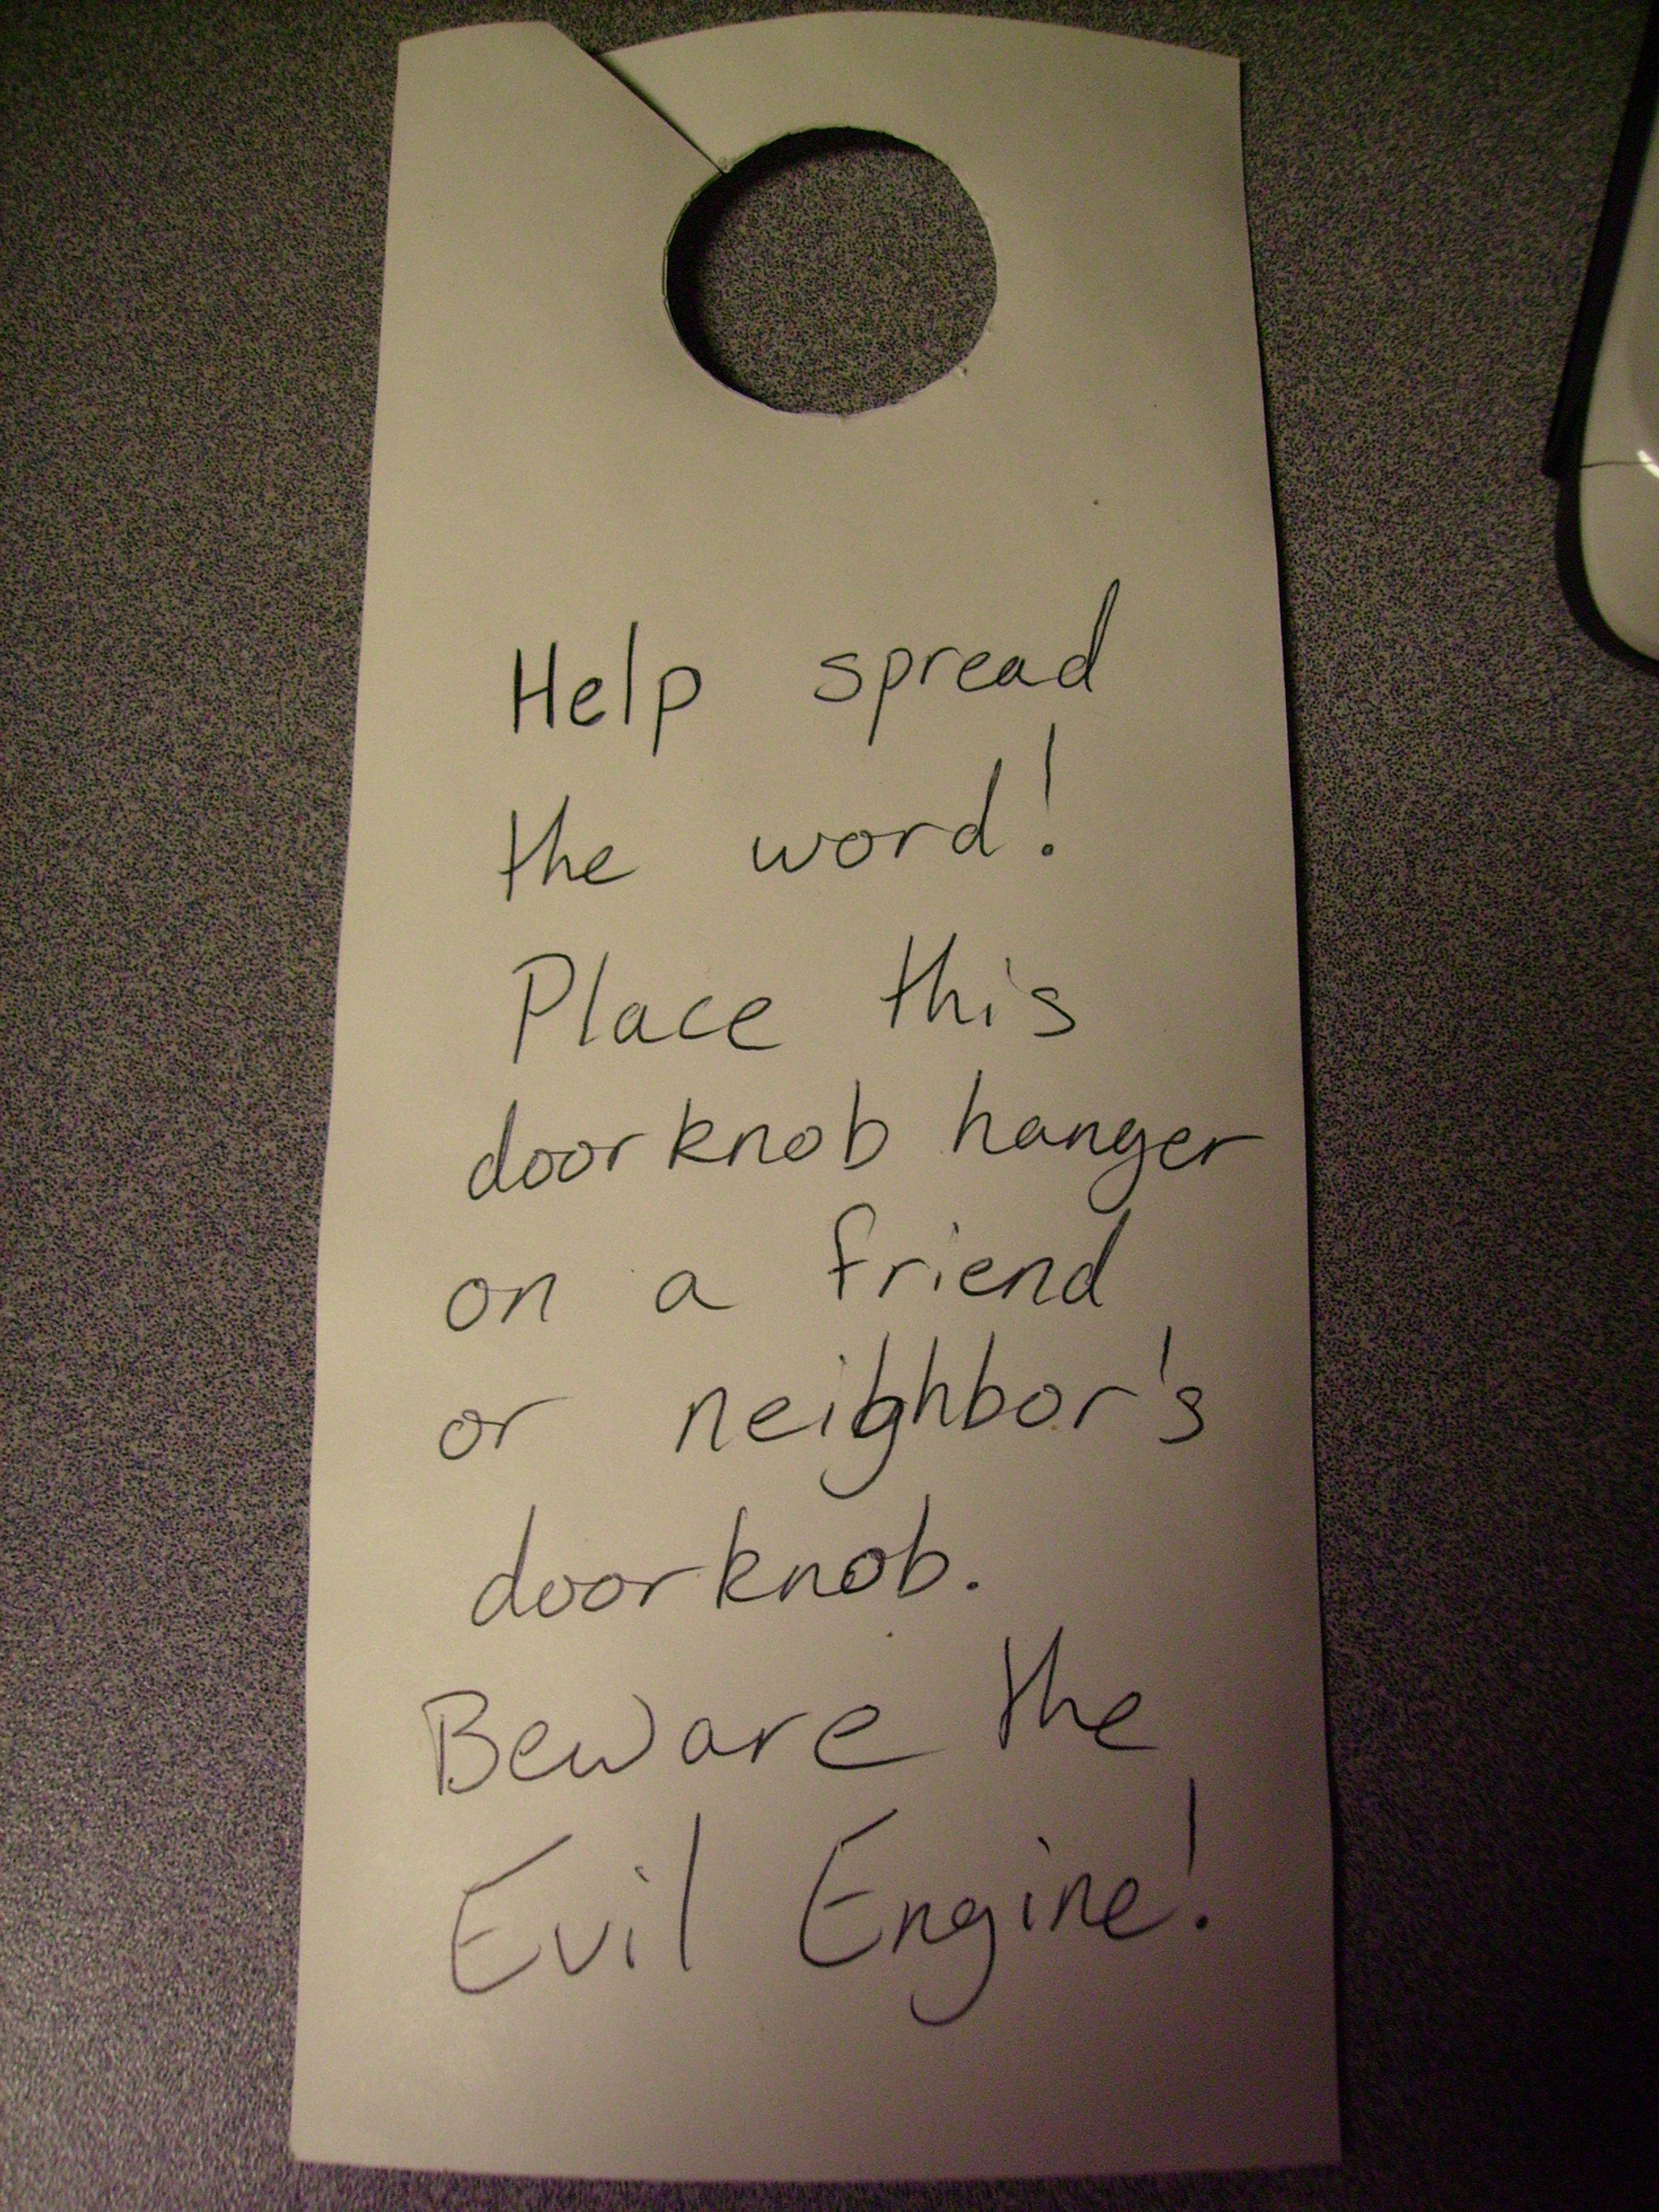 Help spread
the word!
Place this
doorknob hanger
on a friend
or neighbor's
doorknob.
Beware the
Evil Engine!